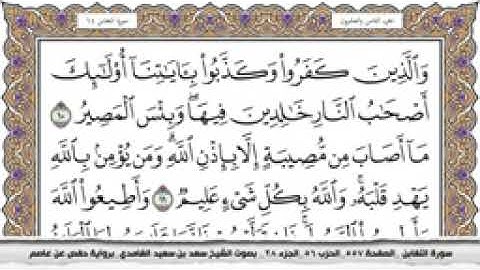 الجزء الثامن والعشرون
سورة التغابن ٦٤
وَالَّذِينَ كَفَرُوا۟ وَكَذَّبُوا۟ بِـَٔايَـٰتِنَآ أُو۟لَـٰٓئِكَ
أَصْحَـٰبُ ٱلنَّارِ خَـٰلِدِينَ فِيهَا ۖ وَبِئْسَ ٱلْمَصِيرُ ١٠
مَآ أَصَابَ مِن مُّصِيبَةٍ إِلَّا بِإِذْنِ ٱللَّهِ ۗ وَمَن يُؤْمِنۢ بِٱللَّهِ
يَهْدِ قَلْبَهُۥ ۚ وَٱللَّهُ بِكُلِّ شَىْءٍ عَلِيمٌ ١١ وَأَطِيعُوا۟ ٱللَّهَ
سورة التغابن . الصفحة ٥٥٧ . الحزب ٥٦ . الجزء ٢٨ . بصوت الشيخ سعد بن سعيد الغامدي . برواية حفص عن عاصم